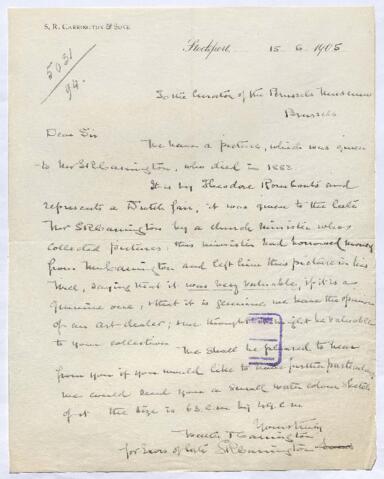 S. R. CARRINGTON & SONS.
Stockport, 15. 6. 1905
5031
94.
To the Curator of the Brussels Museum
Brussels
Dear Sir
We have a picture, which was given
to Mr SRCarrington, who died in 1883.
It is by Theodore Rombouts and
represents a Dutch fair, it was given to the late
Mr SRCarrington by a church minister who
collected pictures: this minister had borrowed money
from Mr Carrington and left him this picture in his
Will, saying that it was very valuable, if it is a
genuine one, & that it is genuine we have the opinion
of an art dealer, & we thought it might be valuable
to your collection.
We shall be pleased to hear
from you if you would like to have further particulars
we could send you a small water colour sketch
of it the size is 63 c.m by 49 c.m
Yours truly
Carrington
for Exors of late SRCarrington